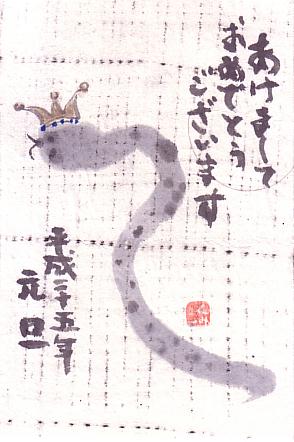 あけまして
おめでとう
ございます
平成二十五年
元旦